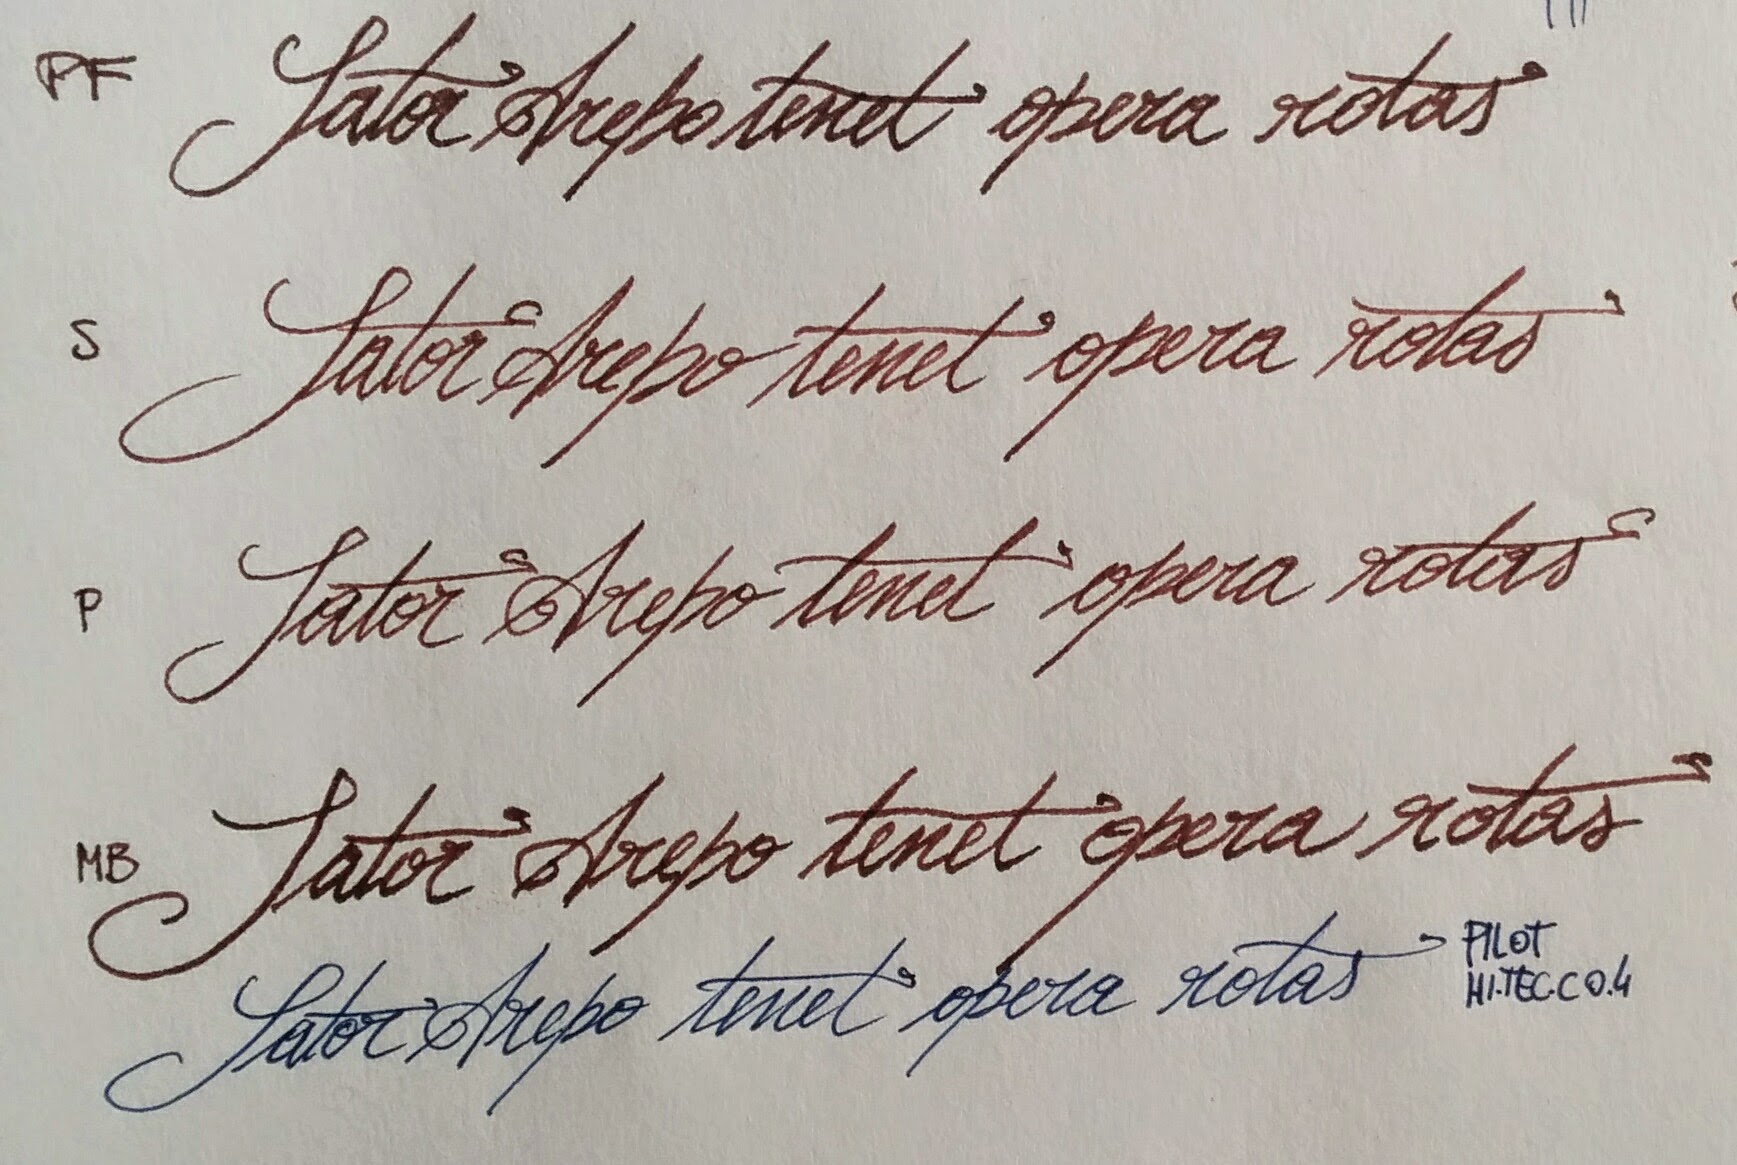 PF Sator Arepo tenet opera rotas
S Sator Arepo tenet opera rotas
P Sator Arepo tenet opera rotas
MB Sator Arepo tenet opera rotas
Sator Arepo tenet opera rotas PILOT
HI-TEC-C 0.4